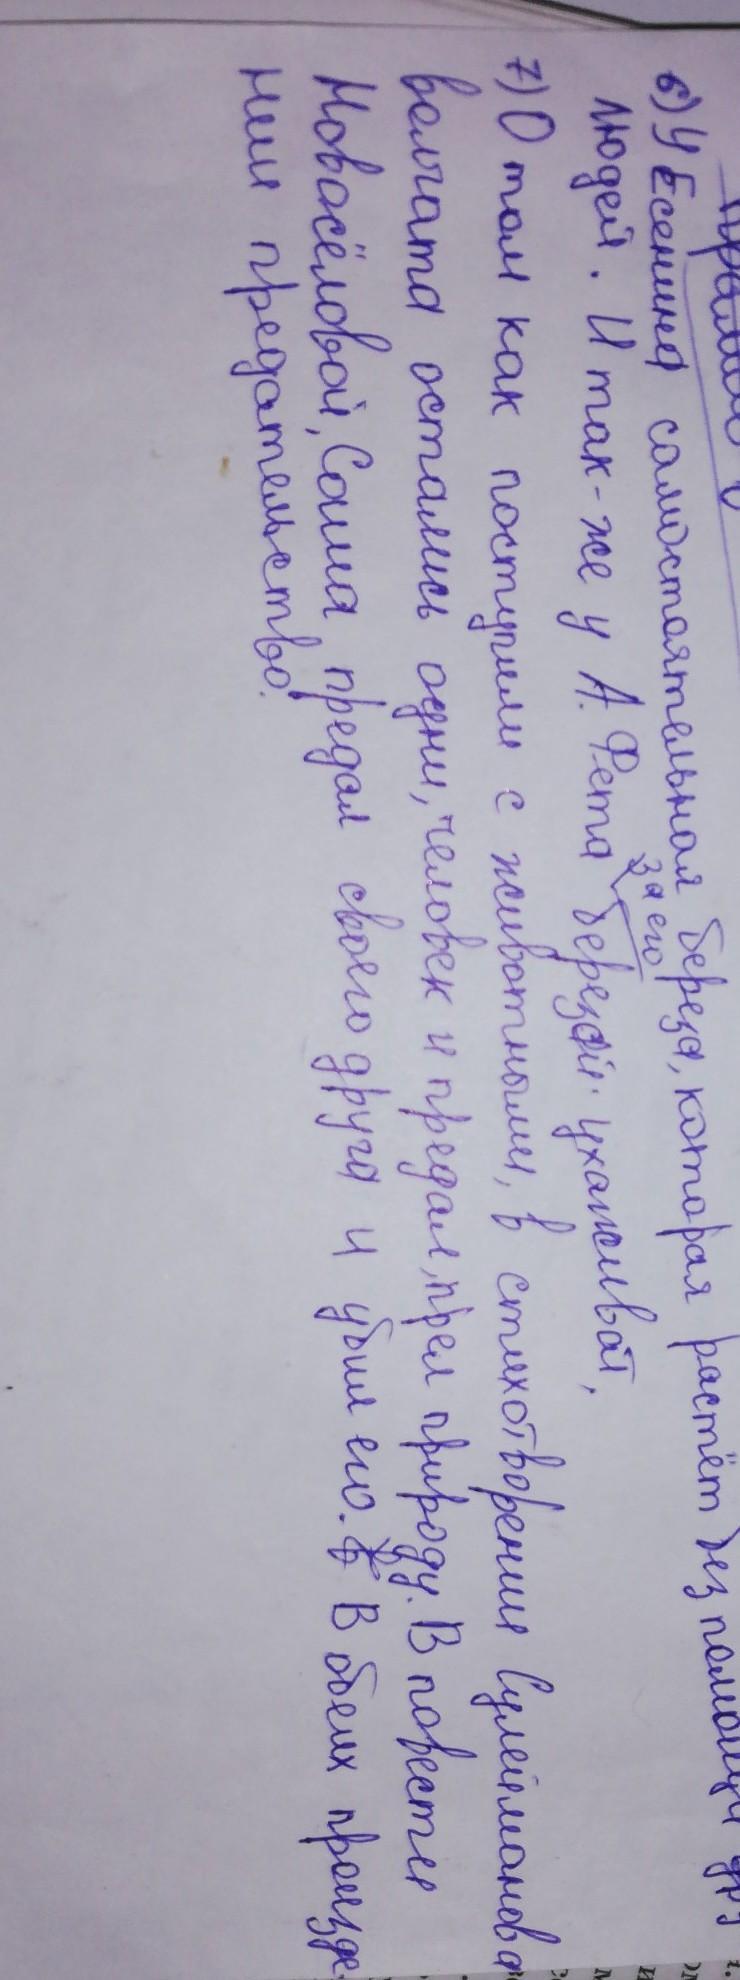 6) У Есенина самостоятельная береза, которая растёт без помощи
людей. И так-же у А. Фета березой ухаживат,
за его
7) О том как поступили с животными, в стихотворении Сулейманова
волчата остались одни, человек и предал, прел природу. В повести
Новосёловой, Саша предал своего друга и убил его. В обеих произде
нии предательство.